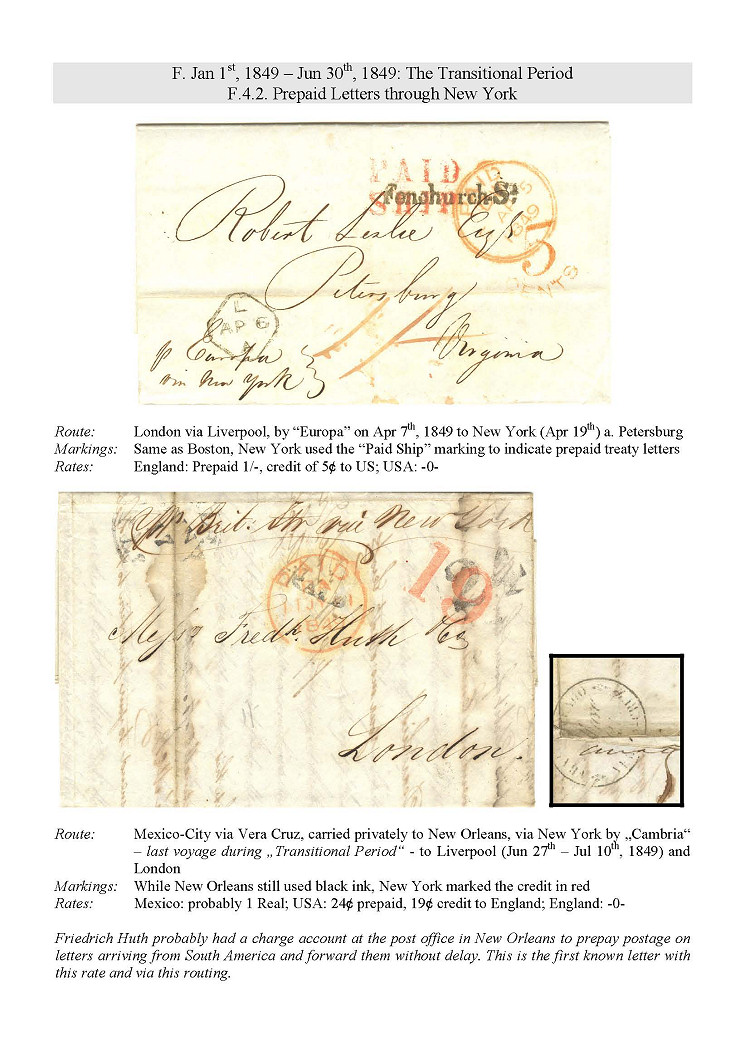 F. Jan 1st, 1849 – Jun 30th, 1849: The Transitional Period
F.4.2. Prepaid Letters through New York
PAID
SHIP
Fenchurch St
PAID
AP 6
1849
5
CENTS
Robert Leslie Esqr
Petersburg
Virginia
L
AP 6
p Europa
via New York
1/-
Route: London via Liverpool, by “Europa” on Apr 7th, 1849 to New York (Apr 19th) a. Petersburg
Markings: Same as Boston, New York used the “Paid Ship” marking to indicate prepaid treaty letters
Rates: England: Prepaid 1/-, credit of 5¢ to US; USA: -0-
pr Brit. Str via New York
PAID
PAID
19
24
Messrs Fredk. Huth & Co
London.
Route: Mexico-City via Vera Cruz, carried privately to New Orleans, via New York by „Cambria“
– last voyage during „Transitional Period“ - to Liverpool (Jun 27th – Jul 10th, 1849) and
London
Markings: While New Orleans still used black ink, New York marked the credit in red
Rates: Mexico: probably 1 Real; USA: 24¢ prepaid, 19¢ credit to England; England: -0-
Friedrich Huth probably had a charge account at the post office in New Orleans to prepay postage on
letters arriving from South America and forward them without delay. This is the first known letter with
this rate and via this routing.